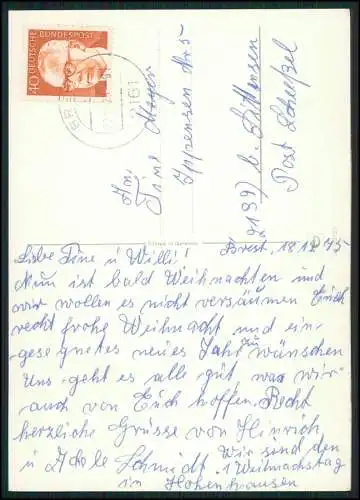 DEUTSCHE
BUNDESPOST
40
2161
An
Tine Meyer
Ippensen Nr 5
2139) b. Sittensen
Post Scheeßel
Brest, 18.12.75
Liebe Tine u Willi!
Nun ist bald Weihnachten und
wir wollen es nicht versäumen Euch
recht frohe Weihnacht und ein
gesegnetes neues Jahr zu wünschen
Uns geht es alle gut was wir
auch von Euch hoffen. Recht
herzliche Grüsse von Hinrich
u Adele Schmidt. Wir sind den
1 Weihnachstag
in Hohenhausen